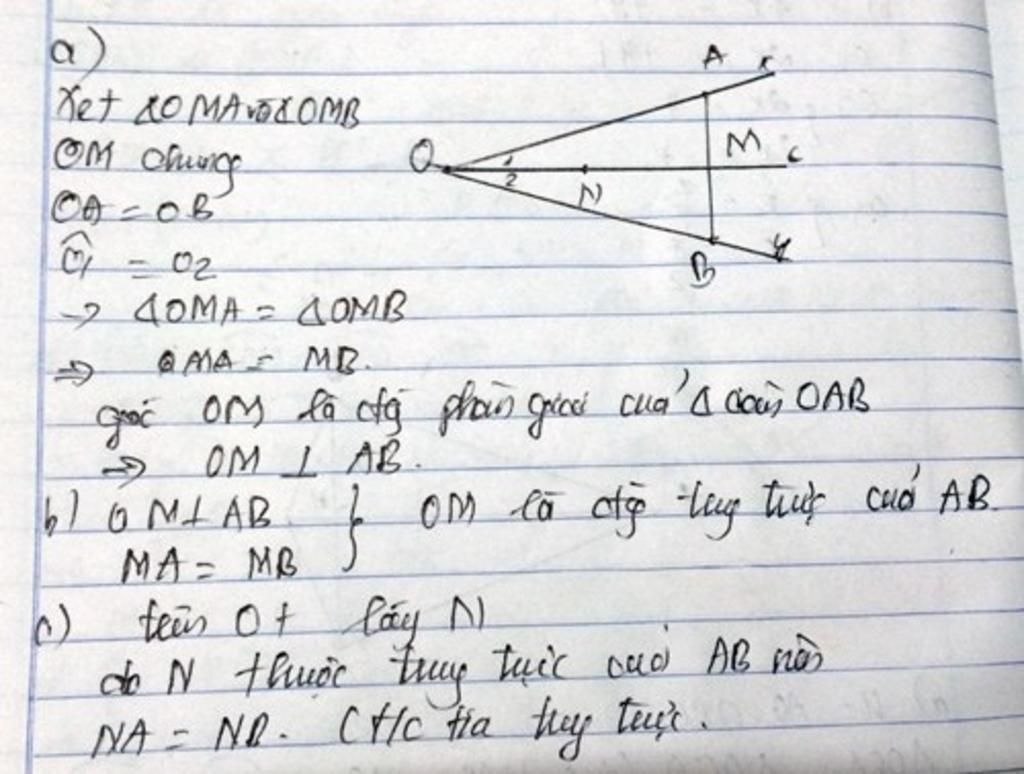 a)
Xet ΔOMA và ΔOMB
OM chung
OA = OB
Ô1 = O2
→ ΔOMA = ΔOMB
⇒ MA = MB.
góc OM là đg phân giác của Δ cân OAB
⇒ OM ⊥ AB.
b) OM ⊥ AB } OM là đg trug trực của AB.
MA = MB
c) trên Ot lấy N
do N thuộc trug trực của AB nên
NA = NB. (t/c tia trug trực.
A x
O 1 M t
2 N
B y